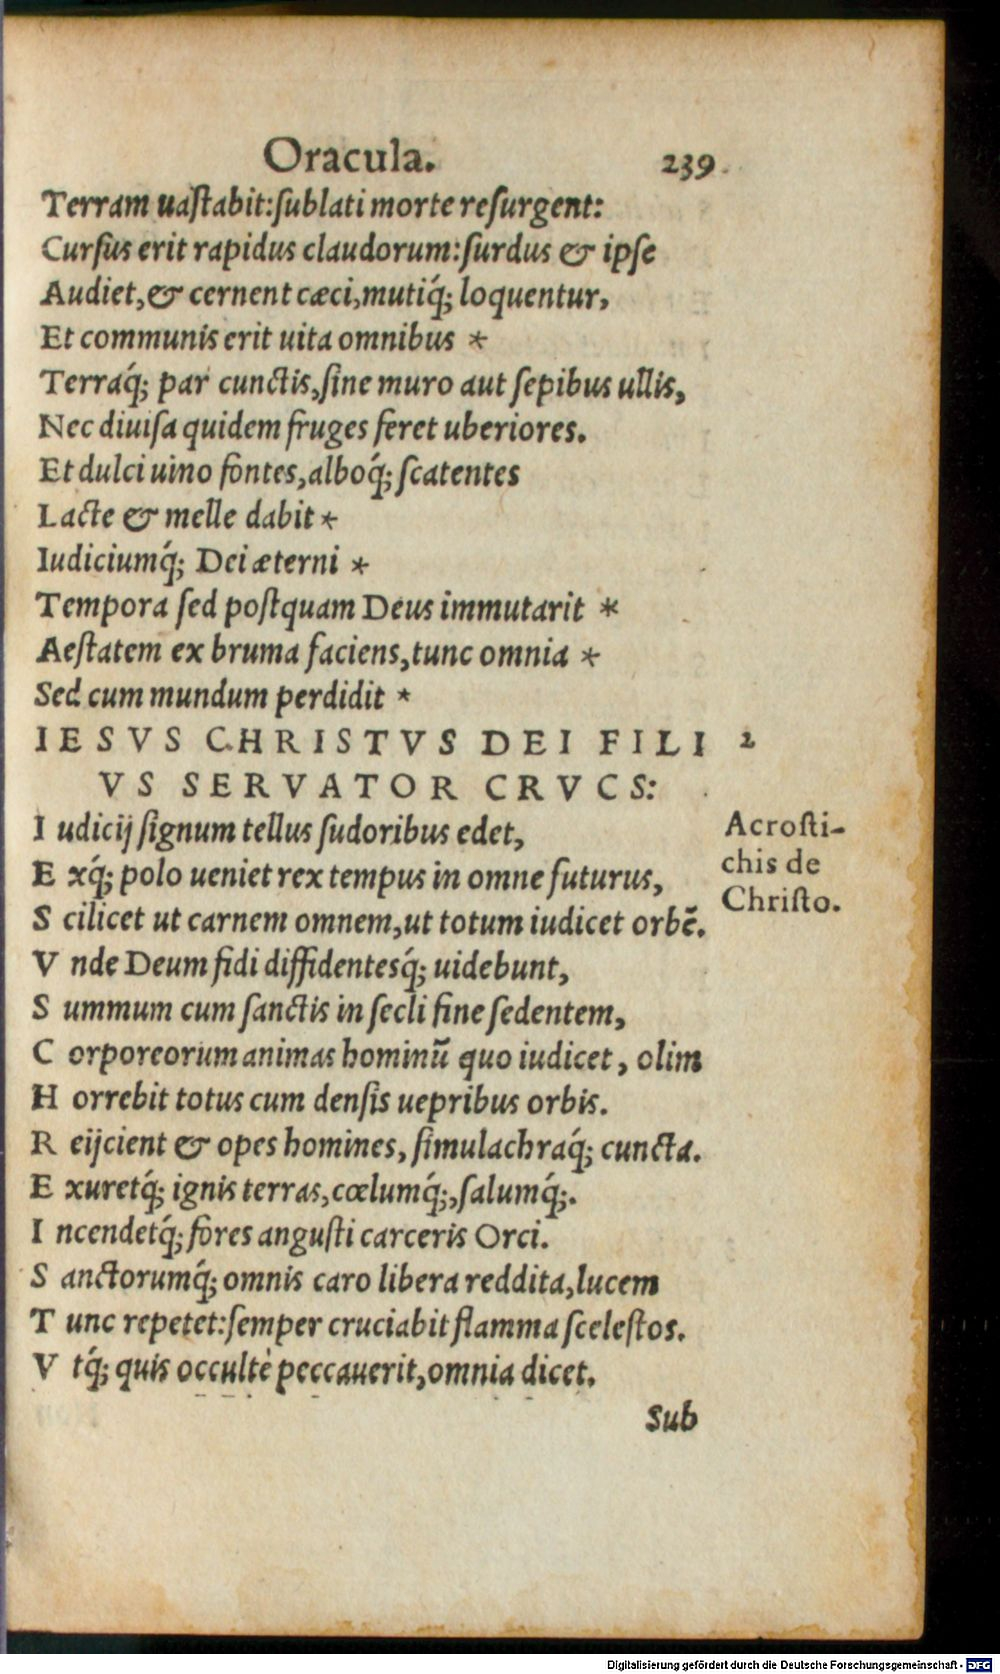 Oracula. 239
Terram uaſtabit:ſublati morte reſurgent:
Curſus erit rapidus claudorum:ſurdus & ipſe
Audiet,& cernent cæci,mutiq́; loquentur,
Et communis erit uita omnibus *
Terraq́; par cunctis,ſine muro aut ſepibus ullis,
Nec diuiſa quidem fruges feret uberiores.
Et dulci uino fontes,alboq́; ſcatentes
Lacte & melle dabit *
Iudiciumq́; Dei æterni *
Tempora ſed poſtquam Deus immutarit *
Aeſtatem ex bruma faciens,tunc omnia *
Sed cum mundum perdidit *
IESVS CHRISTVS DEI FILI 2
VS SERVATOR CRVCS:
I udicij ſignum tellus ſudoribus edet,
Acroſti-
chis de
Chriſto.
E xq́; polo ueniet rex tempus in omne futurus,
S cilicet ut carnem omnem,ut totum iudicet orbē.
V nde Deum fidi diffidentesq́; uidebunt,
S ummum cum ſanctis in ſecli fine ſedentem,
C orporeorum animas hominū quo iudicet, olim
H orrebit totus cum denſis uepribus orbis.
R eijcient & opes homines, ſimulachraq́; cuncta.
E xuretq́; ignis terras,cœlumq́;,ſalumq́;.
I ncendetq́; fores anguſti carceris Orci.
S anctorumq́; omnis caro libera reddita,lucem
T unc repetet:ſemper cruciabit flamma ſceleſtos.
V tq́; quis occultè peccauerit,omnia dicet.
Sub
Digitalisierung gefördert durch die Deutsche Forschungsgemeinschaft - DFG